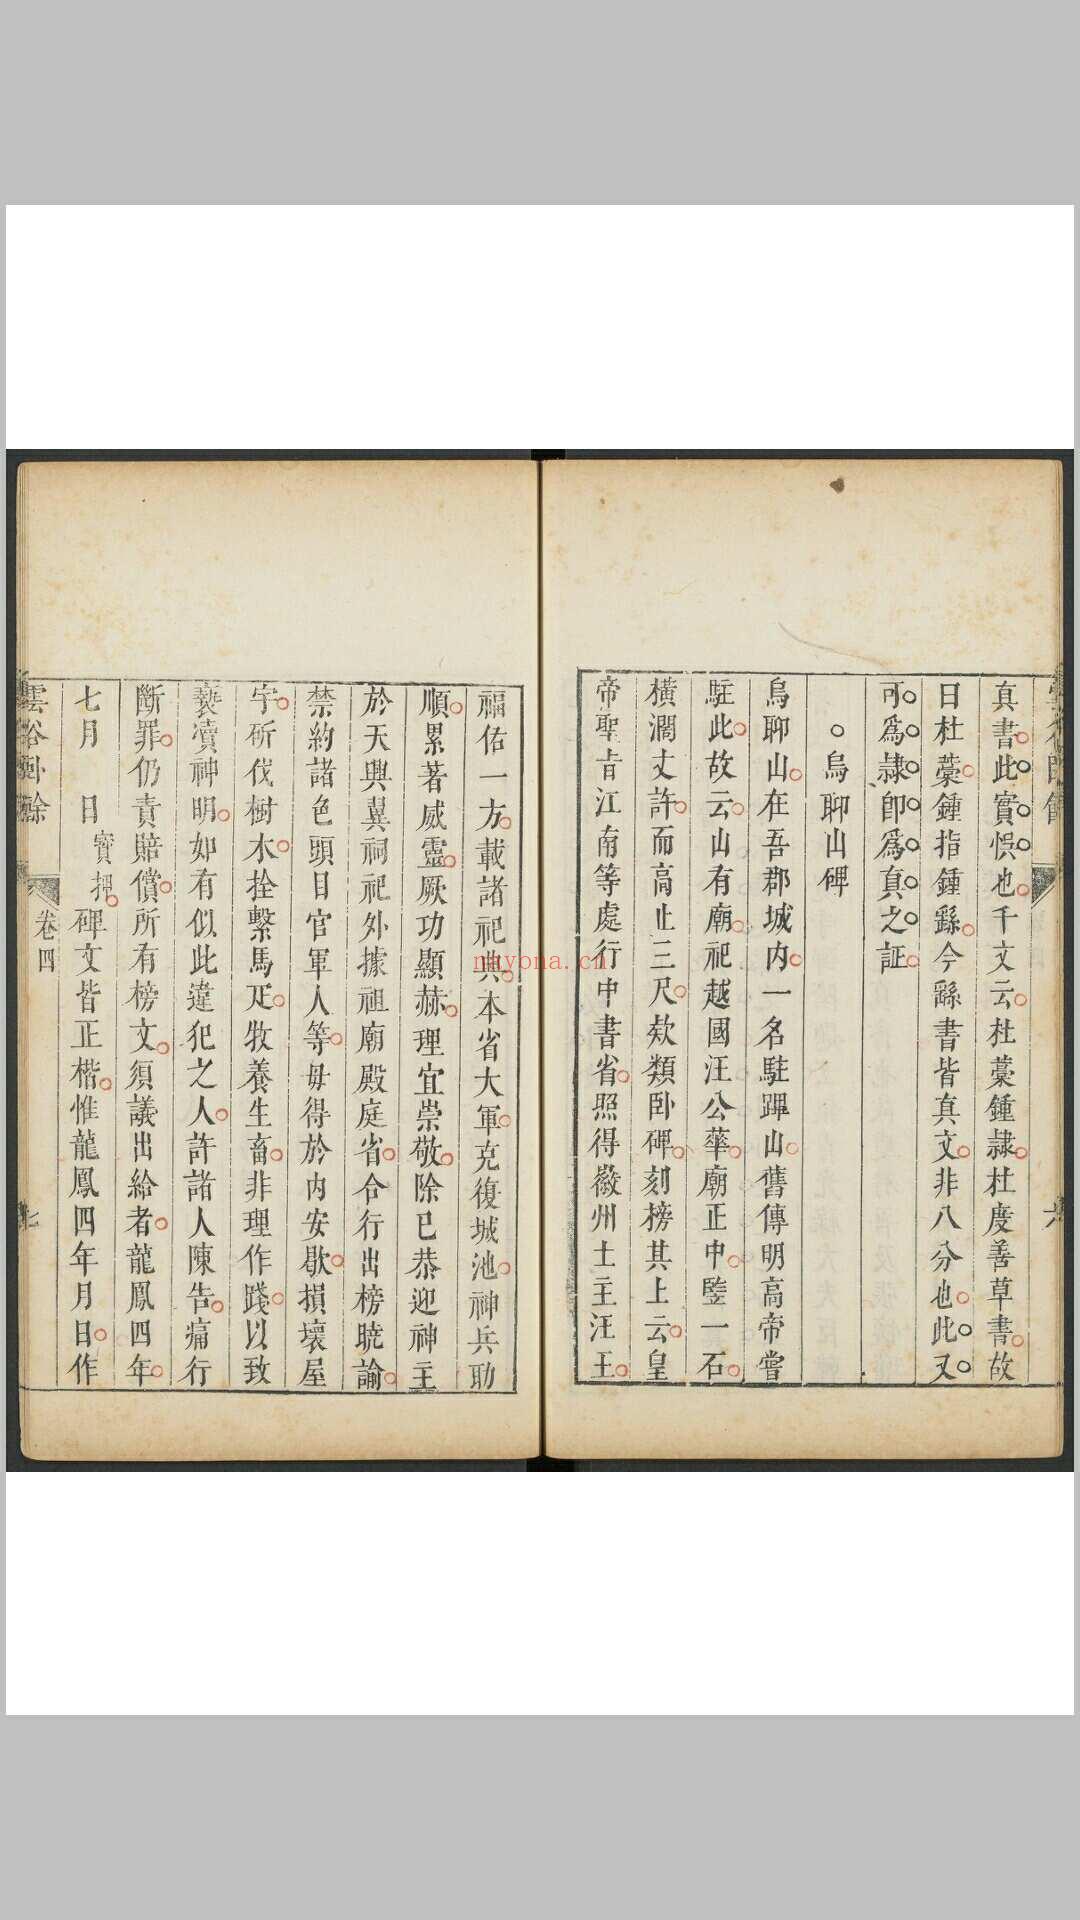 真書此實悞也千文云杜藁鍾隷杜度善草書故
曰杜藁鍾指鍾繇今繇書皆真文非八分也此又
可爲隷卽爲真之証
○烏聊山碑
烏聊山在吾郡城内一名駐蹕山舊傳明高帝嘗
駐此故云山有廟祀越國汪公華廟正中竪一石
橫濶丈許而高止三尺欵類卧碑刻榜其上云皇
帝聖旨江南等處行中書省照得徽州土主汪王
福佑一方載諸祀典本省大軍克復城池神兵助
順累著威靈厥功顯赫理宜崇敬除已恭迎神主
於天興翼祠祀外據祖廟殿庭省合行出榜曉諭
禁約諸色頭目官軍人等毋得於内安歇損壞屋
宇斫伐樹木拴繫馬疋牧養生畜非理作踐以致
褻瀆神明如有似此違犯之人許諸人陳告痛行
斷罪仍責賠償所有榜文須議出給者龍鳳四年
七月 日寳押碑文皆正楷惟龍鳳四年月日作
雲谷臥餘
卷四
七
nayona.cn